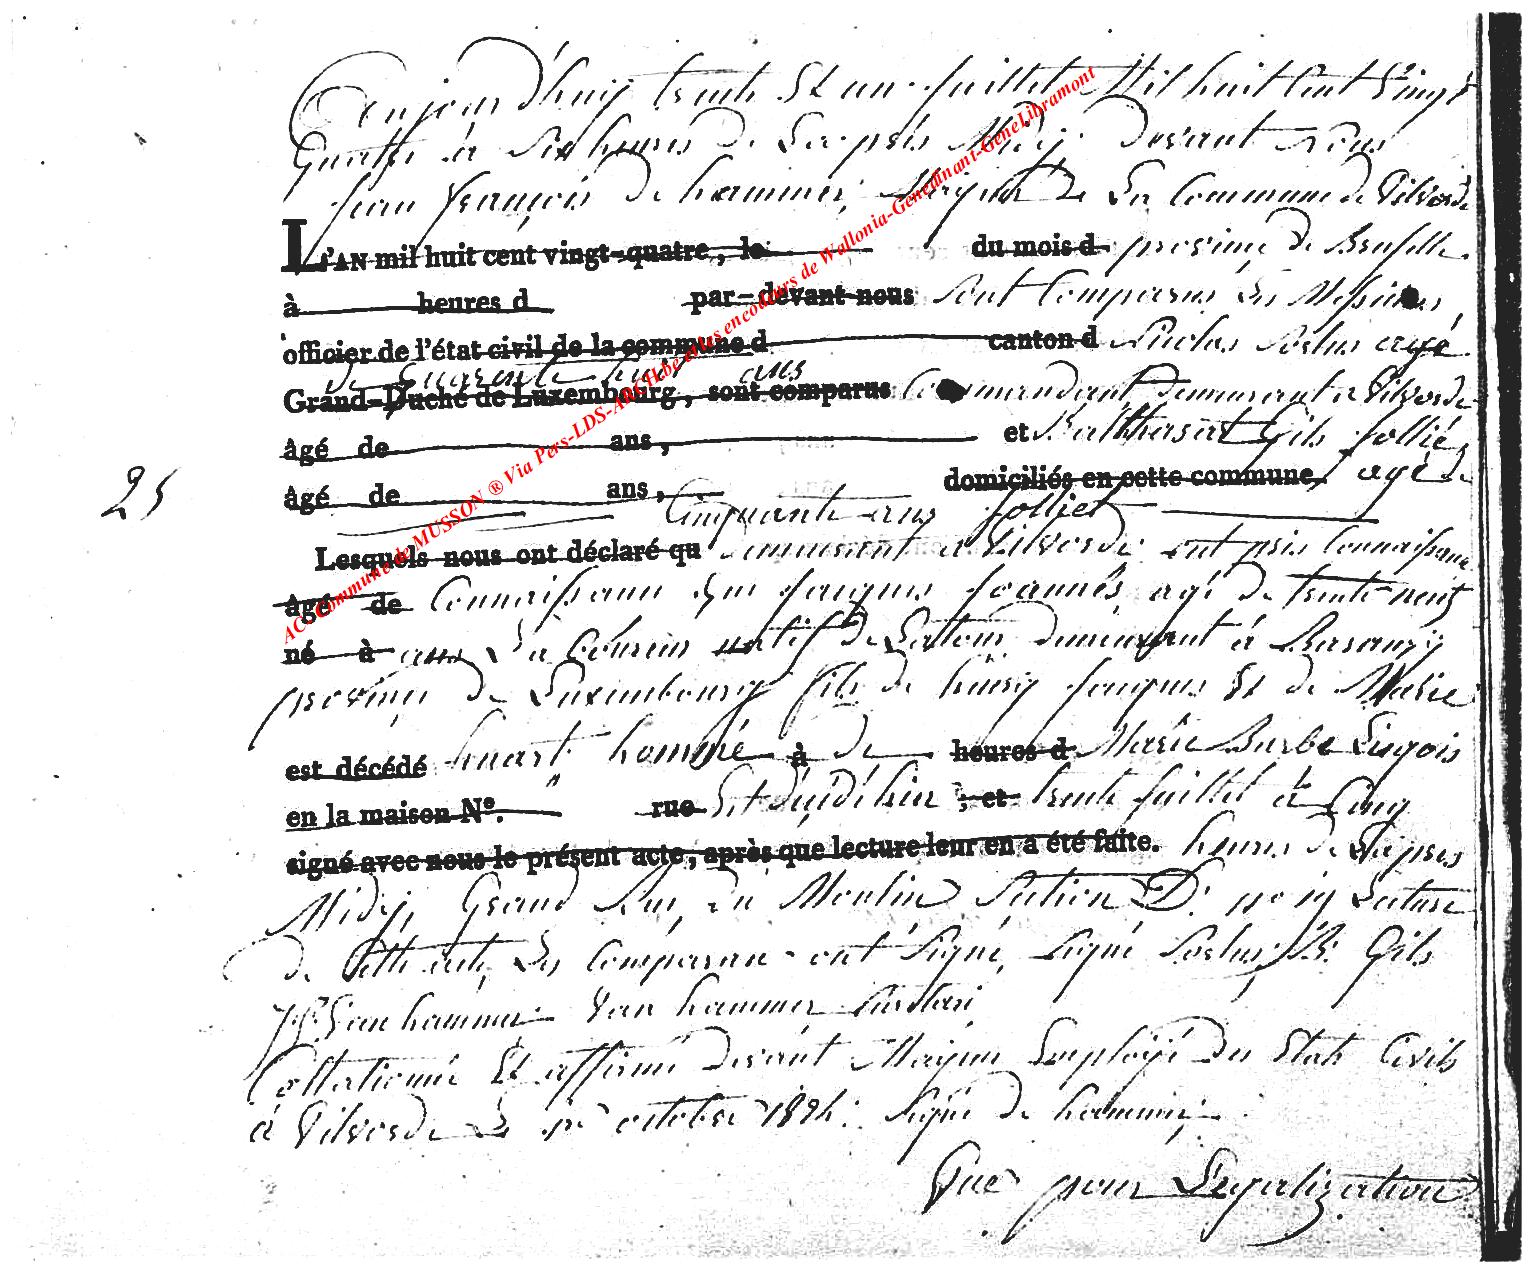 aujourd'huij trente Et un Juillet Mil huit Cent Vingt
Quattre à Six heures de Laprés Midij devant Nous
Jean François de hammer, Mayeur de La Commune de Vilvorde
L'AN mil huit cent vingt-quatre, le du mois d province de Bruselle
à heures d par-devant nous Sont Comparus Les Messieurs
officier de l'état civil de la commune d canton d Nicolas agé
de Quarente huit ans
Grand-Duché de Luxembourg, sont comparus Commandant demeurant a Vilvorde
âgé de ans, et Balthasart Gils
âgé de ans, domiciliés en cette commune, agé de
Cinquante ans
Lesquels nous ont déclaré qu demeurant a Vilvorde ont pris Connaissance
âgé de Connaissance que Jaques Joannés, agé de trente neuf
né à ans natif de Latour demeurant à Baranzij
province de Luxembourg fils de Jaques Et de Marie
est décédé homme à de heures d Marie Barbe
en la maison No. rue Est décédé hier ; et trente Juillet à Cinq
signé avec nous le présent acte, après que lecture leur en a été faite. heures de Lapres
Midij, Grand Rue du Moulin Section D. Lecture
de Cette acte, Les Comparans ont Signé, Signé B. Gils
Van hammer
Collationné Et affirmé devant Mayeur Employé du Etat Civils
à Vilvorde Le octobre 1824. Signé de hammer,
Vue pour Legalization
25
AC. Commune de MUSSON ® Via Pers-LDS-ARCH.be actes encodurs de Wallonia-Genedinant-GeneLibramont